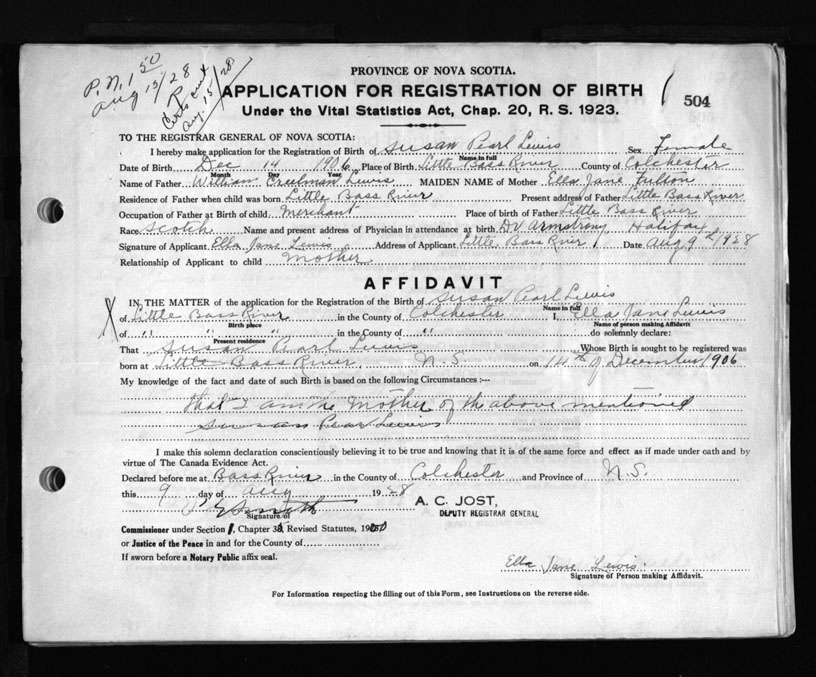 P.N. 1 50
Aug 15/28
Certs out
Aug. 15/28
PROVINCE OF NOVA SCOTIA.
APPLICATION FOR REGISTRATION OF BIRTH
504
Under the Vital Statistics Act, Chap. 20, R. S. 1923.
TO THE REGISTRAR GENERAL OF NOVA SCOTIA:
I hereby make application for the Registration of Birth of Susan Pearl Lewis Sex Female
Name in full
Date of Birth Dec 14 1906 Place of Birth Little Bass River County of Colchester
Month Day Year
Name of Father William Creelman Lewis MAIDEN NAME of Mother Ella Jane Fulton
Residence of Father when child was born Little Bass River Present address of Father Little Bass River
Occupation of Father at Birth of child Merchant Place of birth of Father Little Bass River
Race Scotch Name and present address of Physician in attendance at birth Dr Armstrong Halifax
Signature of Applicant Ella Jane Lewis Address of Applicant Little Bass River Date Aug 9th 1928
Relationship of Applicant to child Mother
AFFIDAVIT
IN THE MATTER of the application for the Registration of the Birth of Susan Pearl Lewis
Name in full
of Little Bass River in the County of Colchester I, Ella Jane Lewis
Birth place Name of person making Affidavit
of " " " in the County of " do solemnly declare:
Present residence
That Susan Pearl Lewis Whose Birth is sought to be registered was
born at Little Bass River, N.S. on 14th of December 1906
My knowledge of the fact and date of such Birth is based on the following Circumstances :—
that I am the Mother of the above mentioned
Susan Pearl Lewis
I make this solemn declaration conscientiously believing it to be true and knowing that it is of the same force and effect as if made under oath and by
virtue of The Canada Evidence Act.
Declared before me at Bass River in the County of Colchester and Province of N.S.
this 9 day of Aug 1928
A. C. JOST,
Signature of
DEPUTY REGISTRAR GENERAL
Commissioner under Section 1, Chapter 38, Revised Statutes, 1900
or Justice of the Peace in and for the County of
If sworn before a Notary Public affix seal.
Ella Jane Lewis.
Signature of Person making Affidavit.
For Information respecting the filling out of this Form, see Instructions on the reverse side.